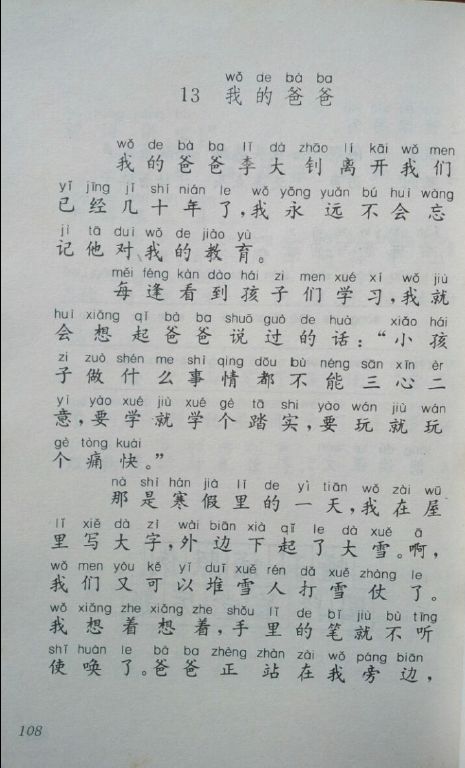 wǒ de bà ba
13 我的爸爸
wǒ de bà ba lǐ dà zhāo lí kāi wǒ men
我的爸爸李大钊离开我们
yǐ jīng jǐ shí nián le wǒ yǒng yuǎn bú huì wàng
已经几十年了，我永远不会忘
jì tā duì wǒ de jiào yù
记他对我的教育。
měi féng kàn dào hái zi men xué xí wǒ jiù
每逢看到孩子们学习，我就
huì xiǎng qǐ bà ba shuō guò de huà xiǎo hái
会想起爸爸说过的话：“小孩
zi zuò shén me shì qing dōu bù néng sān xīn èr
子做什么事情都不能三心二
yì yào xué jiù xué gè tā shi yào wán jiù wán
意，要学就学个踏实，要玩就玩
gè tòng kuài
个痛快。”
nà shì hán jià lǐ de yì tiān wǒ zài wū
那是寒假里的一天，我在屋
lǐ xiě dà zì wài biān xià qǐ le dà xuě ā
里写大字，外边下起了大雪。啊，
wǒ men yòu kě yǐ duī xuě rén dǎ xuě zhàng le
我们又可以堆雪人打雪仗了。
wǒ xiǎng zhe xiǎng zhe shǒu lǐ de bǐ jiù bù tīng
我想着想着，手里的笔就不听
shǐ huàn le bà ba zhèng zhàn zài wǒ páng biān
使唤了。爸爸正站在我旁边，
108